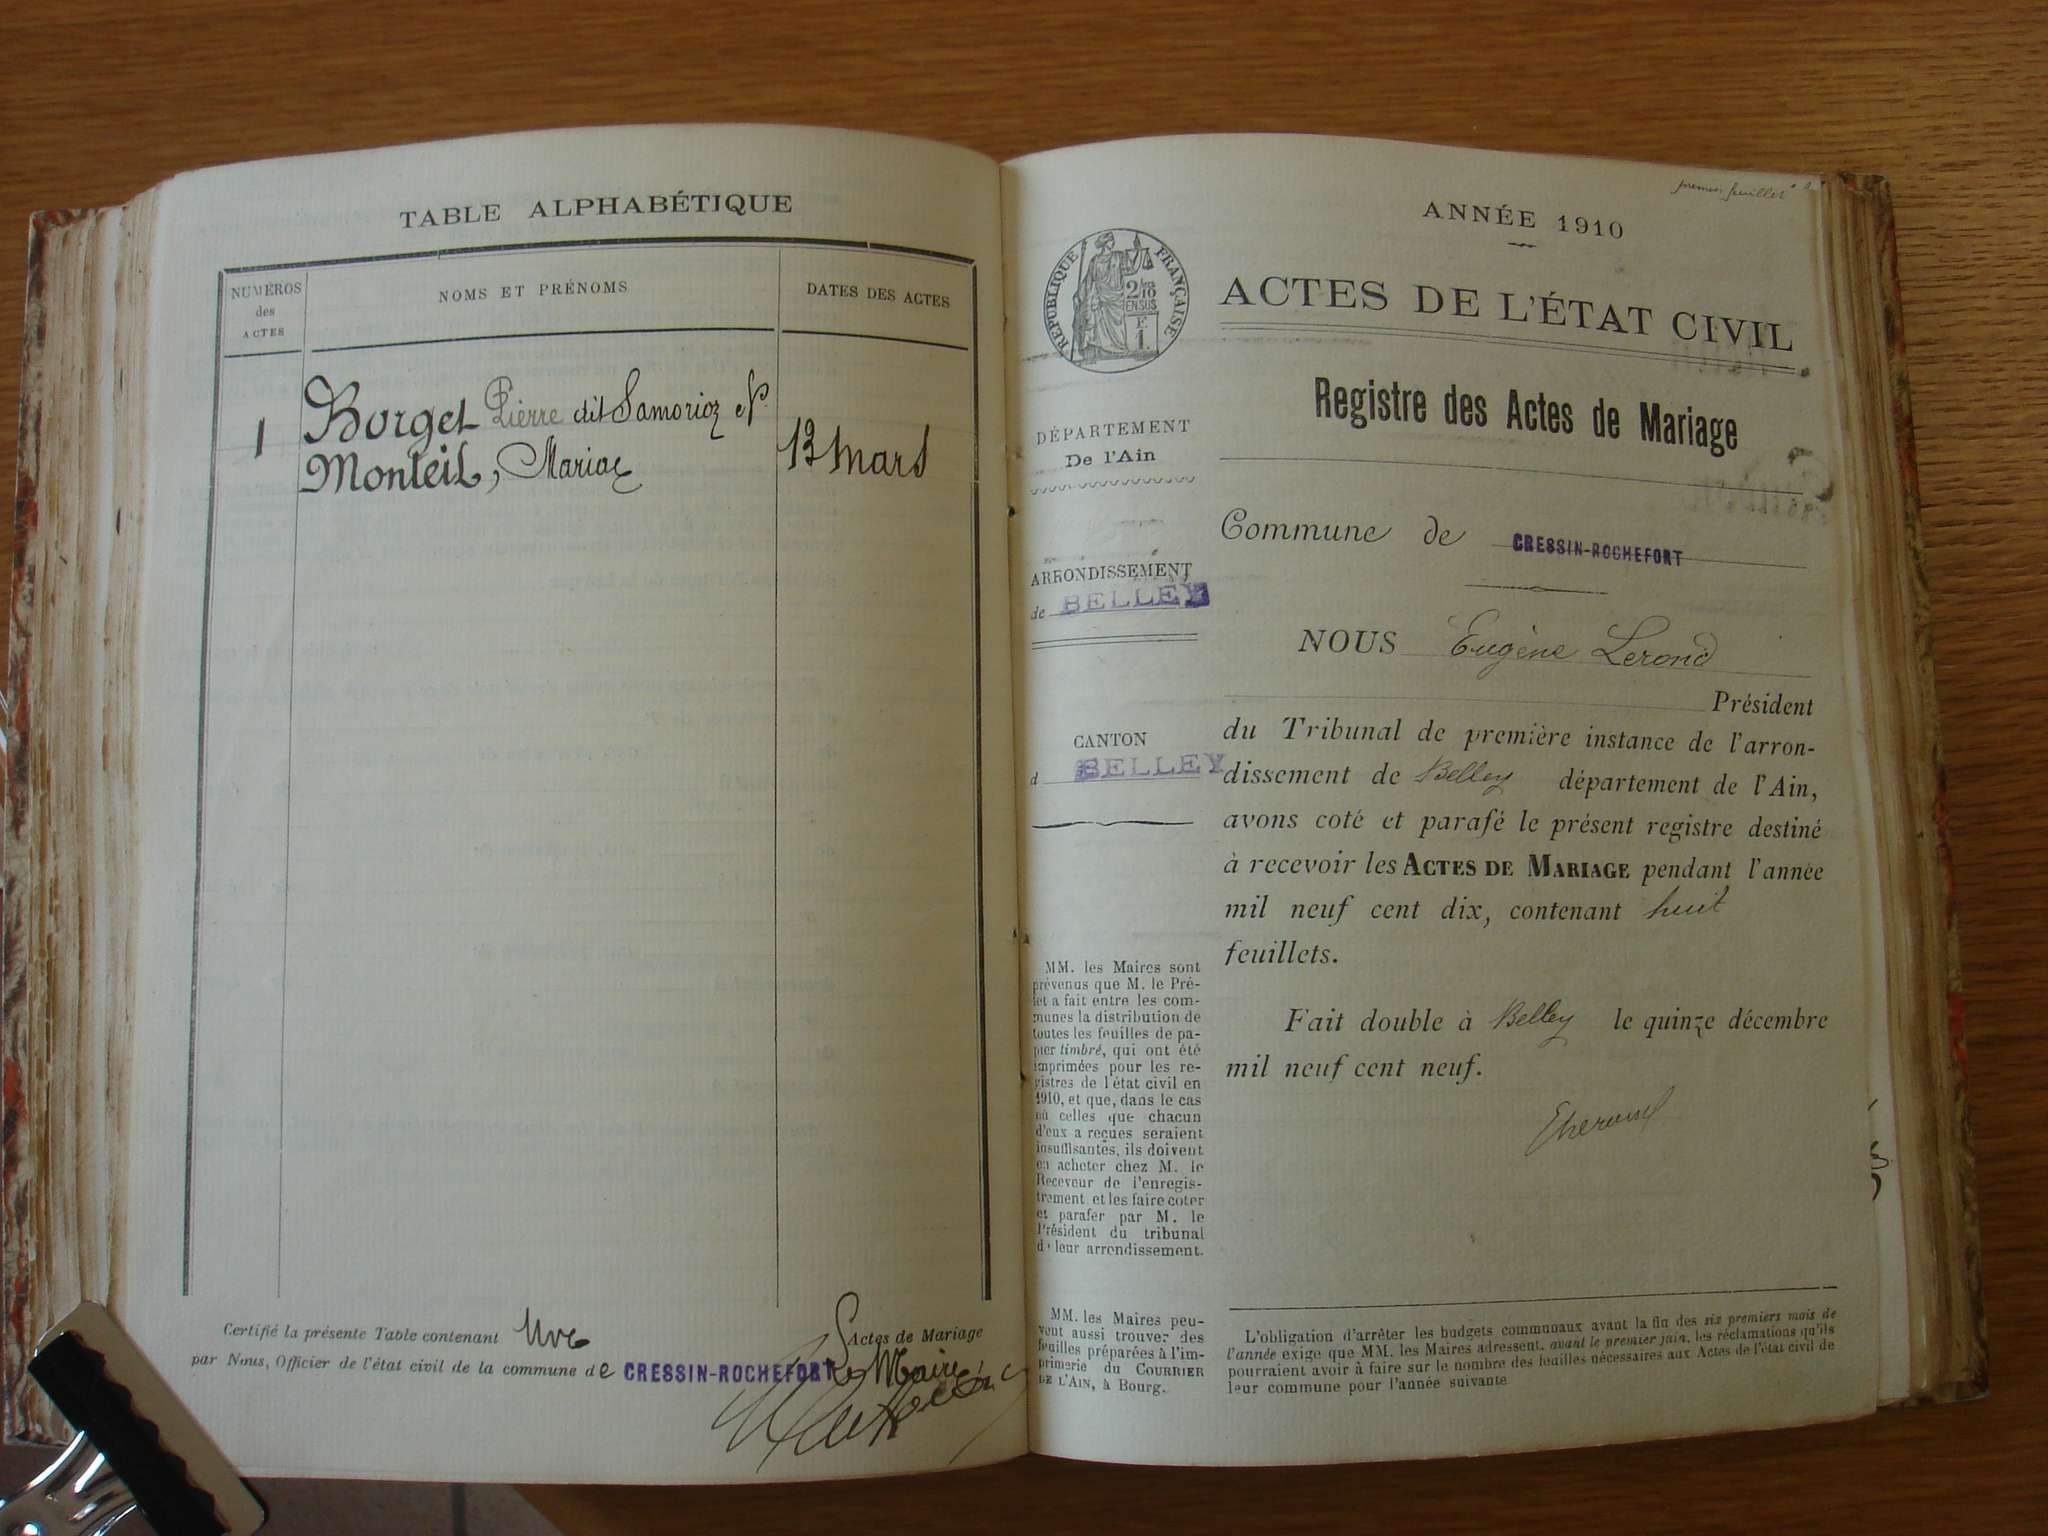 TABLE ALPHABÉTIQUE
NUMÉROS
des
ACTES
NOMS ET PRÉNOMS
DATES DES ACTES
1
Borget Pierre dit Samorioz et
Monteil, Maria
13 mars
Certifié la présente Table contenant Une Actes de Mariage
par Nous, Officier de l'état civil de la commune de CRESSIN-ROCHEFORT
Le Maire
premier feuillet
ANNÉE 1910
RÉPUBLIQUE FRANÇAISE
2/10
EN SUS
F.
1.
ACTES DE L'ÉTAT CIVIL
Registre des Actes de Mariage
DÉPARTEMENT
De l'Ain
ARRONDISSEMENT
de BELLEY
CANTON
d BELLEY
MM. les Maires sont
prévenus que M. le Pré-
fet a fait entre les com-
munes la distribution de
toutes les feuilles de pa-
pier timbré, qui ont été
imprimées pour les re-
gistres de l'état civil en
1910, et que, dans le cas
où celles que chacun
d'eux a reçues seraient
insuffisantes, ils doivent
en acheter chez M. le
Receveur de l'enregis-
trement et les faire coter
et parafer par M. le
Président du tribunal
de leur arrondissement.
MM. les Maires peu-
vent aussi trouver des
feuilles préparées à l'im-
primerie du COURRIER
DE L'AIN, à Bourg.
Commune de CRESSIN-ROCHEFORT
NOUS Eugène Lerond
Président
du Tribunal de première instance de l'arron-
dissement de Belley département de l'Ain,
avons coté et parafé le présent registre destiné
à recevoir les ACTES DE MARIAGE pendant l'année
mil neuf cent dix, contenant huit
feuillets.
Fait double à Belley le quinze décembre
mil neuf cent neuf.
L'obligation d'arrêter les budgets communaux avant la fin des six premiers mois de
l'année exige que MM. les Maires adressent, avant le premier juin, les réclamations qu'ils
pourraient avoir à faire sur le nombre des feuilles nécessaires aux Actes de l'état civil de
leur commune pour l'année suivante